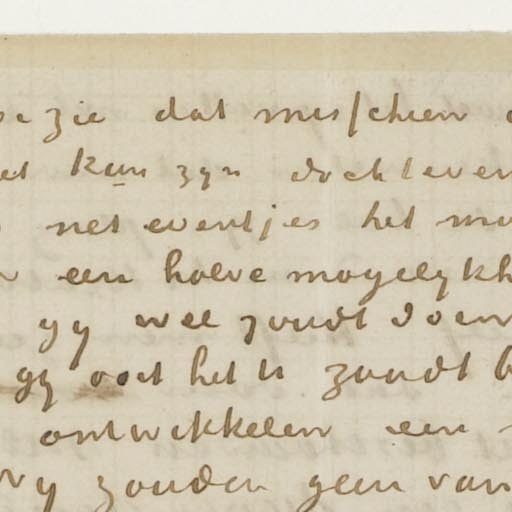 zie dat misschien
kan zyn doch lever
net eventjes het
een halve mogelykh
gy wel zoudt doen
gy ooit het is zoudt
ontwikkelen een
wy zouden geen van